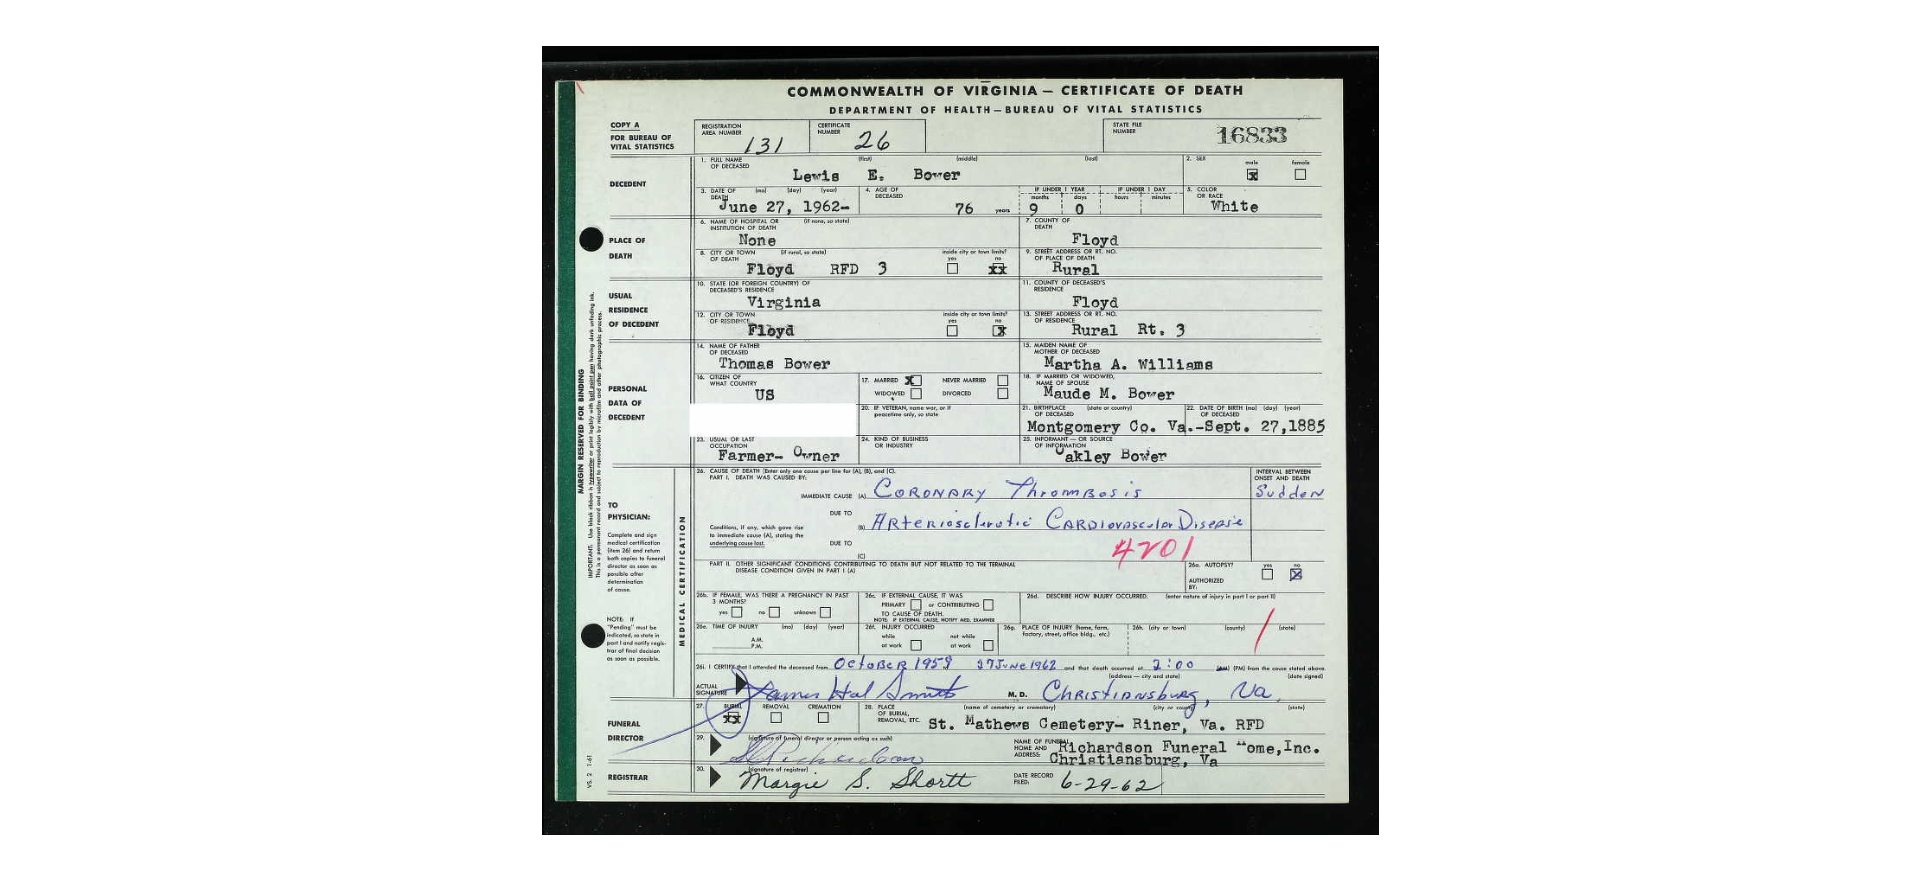 COMMONWEALTH OF VIRGINIA — CERTIFICATE OF DEATH
DEPARTMENT OF HEALTH — BUREAU OF VITAL STATISTICS
COPY A
FOR BUREAU OF
VITAL STATISTICS
REGISTRATION
AREA NUMBER
131
CERTIFICATE
NUMBER
26
STATE FILE
NUMBER
16833
DECEDENT
1. FULL NAME
OF DECEASED
(first) (middle) (last)
Lewis E. Bower
2. SEX
male female
x
3. DATE OF (mo) (day) (year)
DEATH
June 27, 1962-
4. AGE OF
DECEASED
76 years
IF UNDER 1 YEAR
months days
9 0
IF UNDER 1 DAY
hours minutes
5. COLOR
OR RACE
White
PLACE OF
DEATH
6. NAME OF HOSPITAL OR (if none, so state)
INSTITUTION OF DEATH
None
7. COUNTY OF
DEATH
Floyd
8. CITY OR TOWN (if rural, so state)
OF DEATH
Floyd RFD 3
inside city or town limits?
yes no
xx
9. STREET ADDRESS OR RT. NO.
OF PLACE OF DEATH
Rural
USUAL
RESIDENCE
OF DECEDENT
10. STATE (OR FOREIGN COUNTRY) OF
DECEASED'S RESIDENCE
Virginia
11. COUNTY OF DECEASED'S
RESIDENCE
Floyd
12. CITY OR TOWN
OF RESIDENCE
Floyd
inside city or town limits?
yes no
x
13. STREET ADDRESS OR RT. NO.
OF RESIDENCE
Rural Rt. 3
PERSONAL
DATA OF
DECEDENT
14. NAME OF FATHER
OF DECEASED
Thomas Bower
15. MAIDEN NAME OF
MOTHER OF DECEASED
Martha A. Williams
16. CITIZEN OF
WHAT COUNTRY
US
17. MARRIED X NEVER MARRIED
WIDOWED DIVORCED
18. IF MARRIED OR WIDOWED,
NAME OF SPOUSE
Maude M. Bower
20. IF VETERAN, name war, or if
peacetime only, so state
21. BIRTHPLACE (state or country)
OF DECEASED
Montgomery Co. Va.-
22. DATE OF BIRTH (mo) (day) (year)
OF DECEASED
Sept. 27,1885
23. USUAL OR LAST
OCCUPATION
Farmer- Owner
24. KIND OF BUSINESS
OR INDUSTRY
25. INFORMANT — OR SOURCE
OF INFORMATION
Oakley Bower
MARGIN RESERVED FOR BINDING
MEDICAL CERTIFICATION
TO
PHYSICIAN:
Complete and sign
medical certification
(item 26) and return
both copies to funeral
director as soon as
possible after
determination
of cause.
NOTE: IF
"Pending" must be
indicated, so state in
part I and notify regis-
trar of final decision
as soon as possible.
26. CAUSE OF DEATH (Enter only one cause per line for (A), (B), and (C).
PART I. DEATH WAS CAUSED BY:
INTERVAL BETWEEN
ONSET AND DEATH
IMMEDIATE CAUSE (A) Coronary Thrombosis
Sudden
DUE TO
(B) Arteriosclerotic Cardiovascular Disease
Conditions, if any, which gave rise
to immediate cause (A), stating the
underlying cause last.
DUE TO
(C)
4201
PART II. OTHER SIGNIFICANT CONDITIONS CONTRIBUTING TO DEATH BUT NOT RELATED TO THE TERMINAL
DISEASE CONDITION GIVEN IN PART I (A)
26a. AUTOPSY? yes no
X
AUTHORIZED
BY:
26b. IF FEMALE, WAS THERE A PREGNANCY IN PAST
3 MONTHS?
yes no unknown
26c. IF EXTERNAL CAUSE, IT WAS
PRIMARY or CONTRIBUTING
TO CAUSE OF DEATH.
NOTE: IF EXTERNAL CAUSE, NOTIFY MED. EXAMINER
26d. DESCRIBE HOW INJURY OCCURRED. (enter nature of injury in part I or part II)
26e. TIME OF INJURY (mo) (day) (year)
A.M.
P.M.
26f. INJURY OCCURRED
while not while
at work at work
26g. PLACE OF INJURY (home, farm,
factory, street, office bldg., etc.)
26h. (city or town) (county) (state)
26i. I CERTIFY that I attended the deceased from October 1959 27 June 1962 and that death occurred at 2:00 (PM) from the cause stated above
(address — city and state) (date signed)
ACTUAL
SIGNATURE
James Hal Smith M. D. Christiansburg, Va.
FUNERAL
DIRECTOR
27. BURIAL REMOVAL CREMATION
xx
28. PLACE
OF BURIAL,
REMOVAL, ETC.
(name of cemetery or crematory) (city or county) (state)
St. Mathews Cemetery- Riner, Va. RFD
29. (signature of funeral director or person acting as such)
NAME OF FUNERAL
HOME AND
ADDRESS:
Richardson Funeral Home,Inc.
Christiansburg, Va
REGISTRAR
30. (signature of registrar)
Margie S. Shortt
DATE RECORD
FILED:
6-29-62